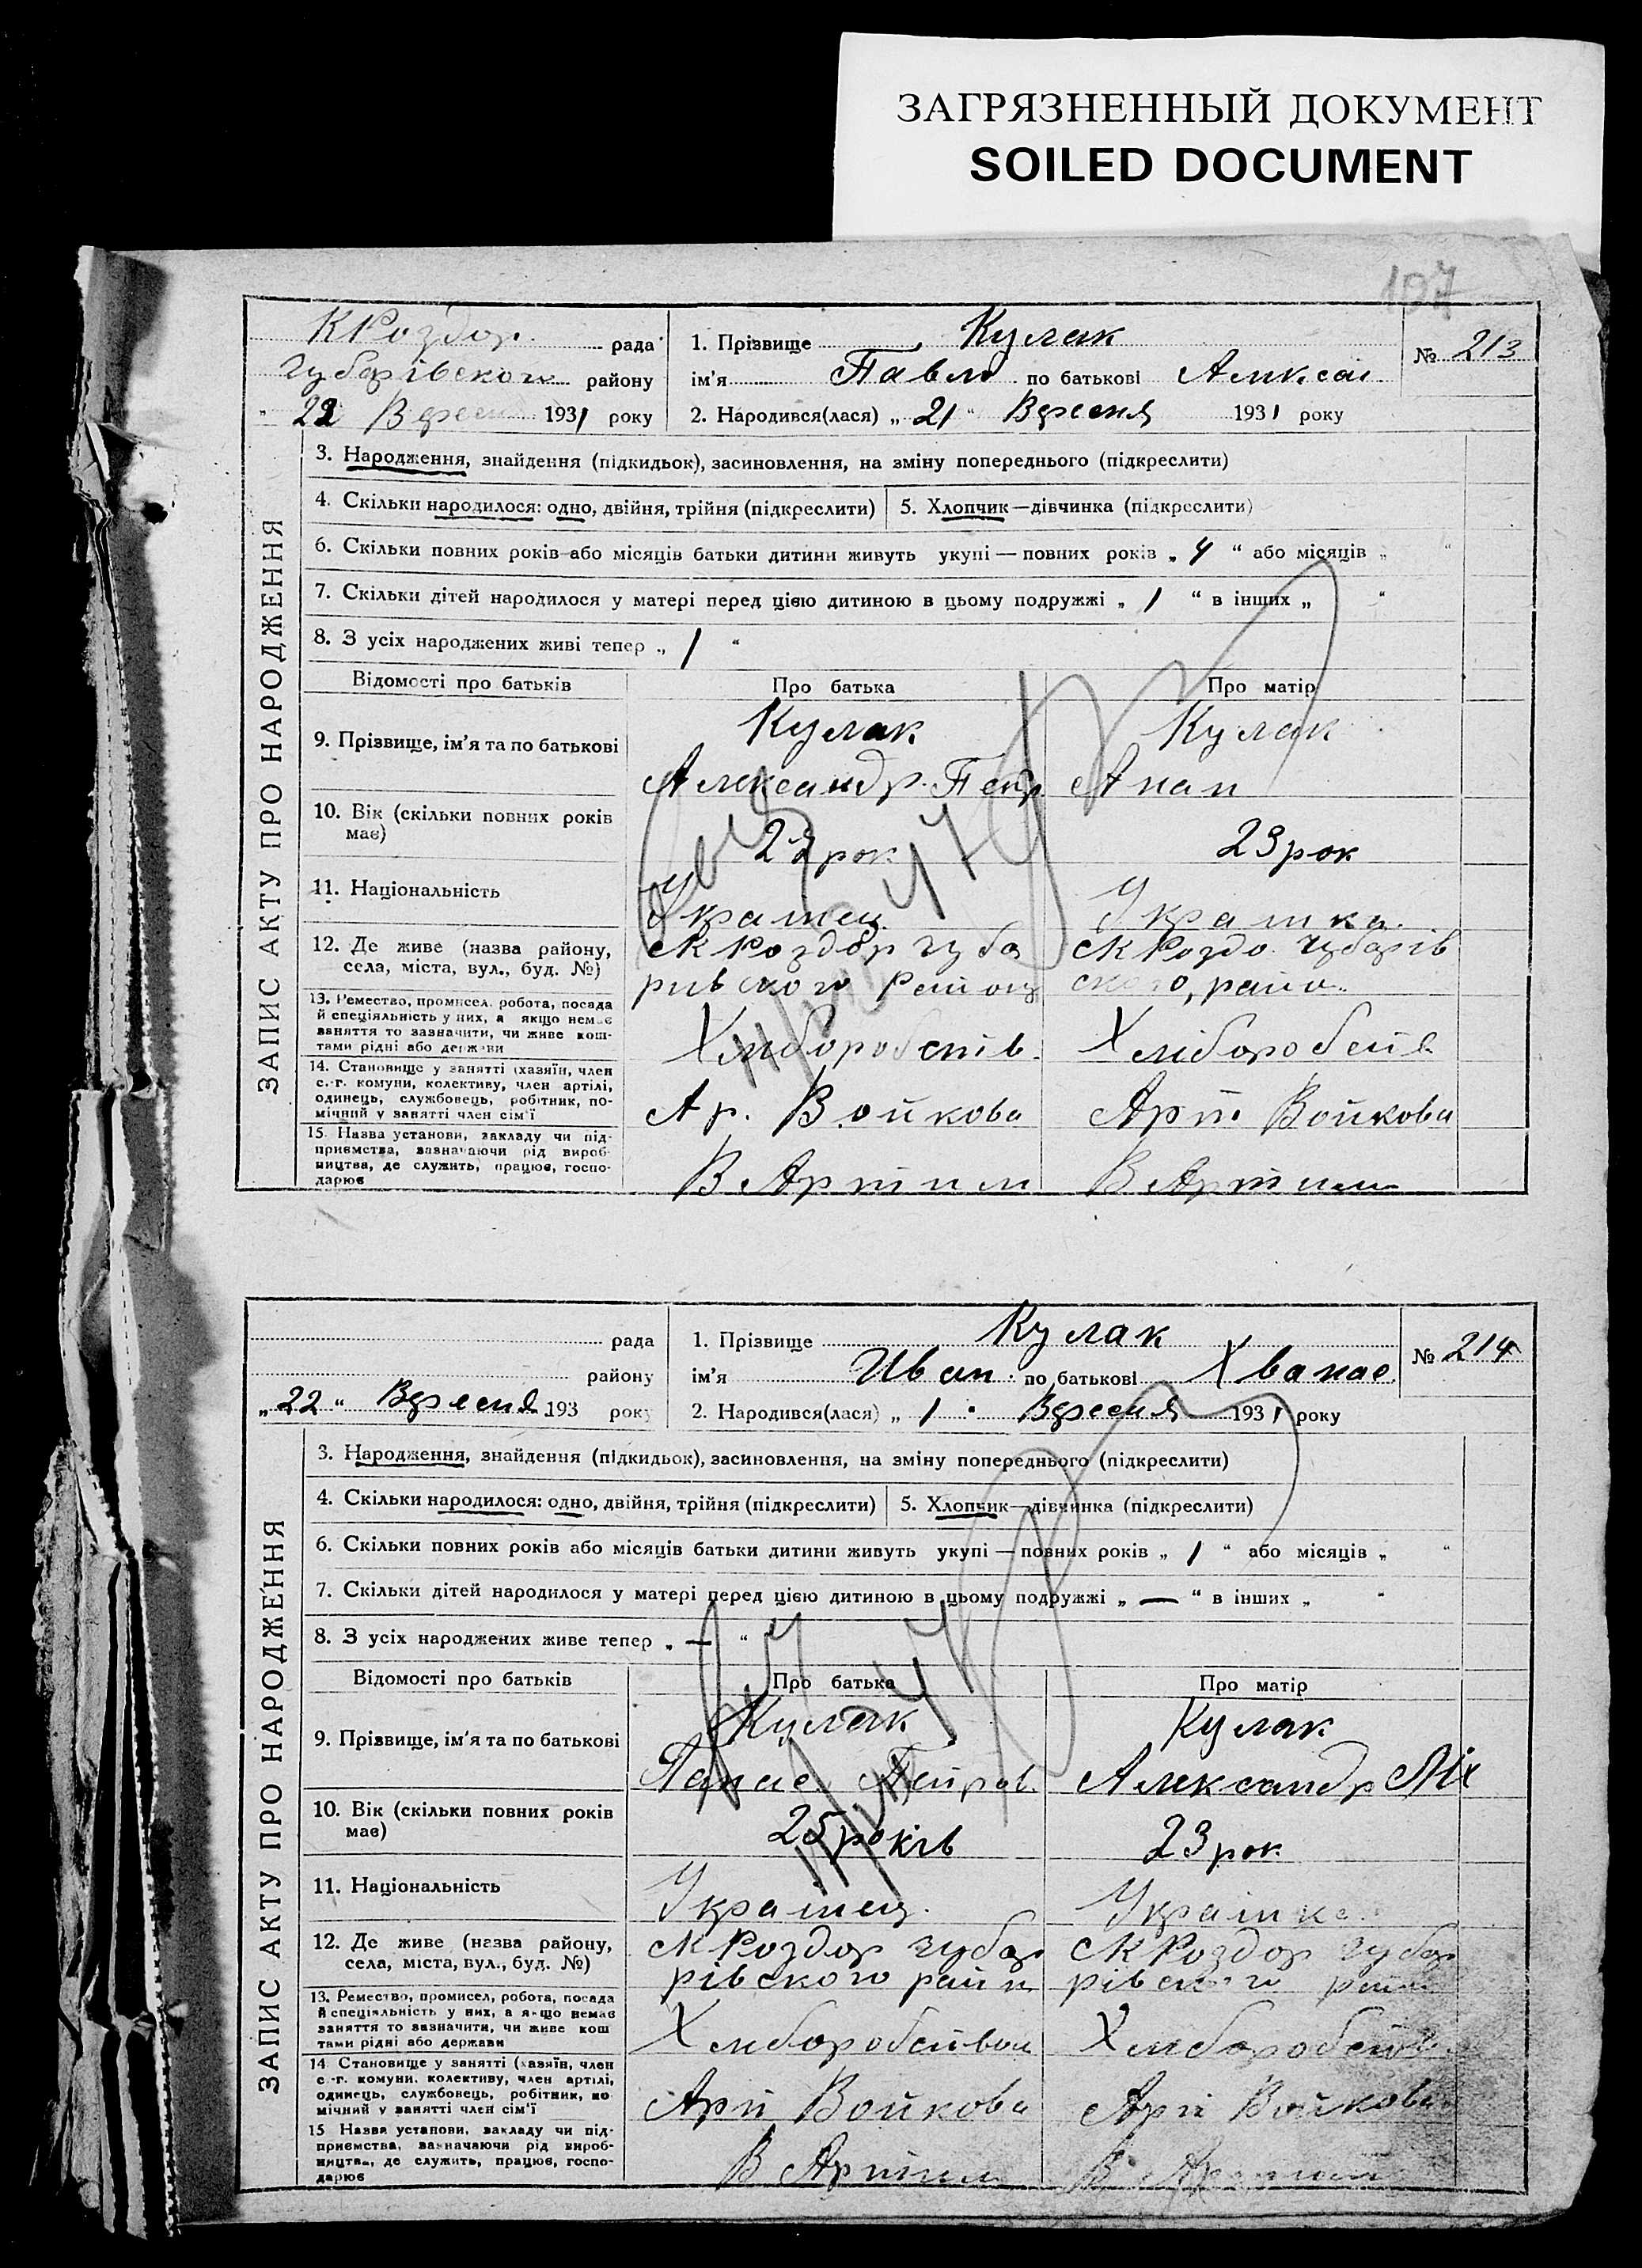 ЗАГРЯЗНЕННЫЙ ДОКУМЕНТ
SOILED DOCUMENT
107
ЗАПИС АКТУ ПРО НАРОДЖЕННЯ
КРоздор. рада
Чубарівского району
"22 Вересн 1931 року
1. Прізвище Кулак
ім'я Павло по батькові Алексаі
№ 213
2. Народився(лася) „ 21 " Вересня 1931 року
3. Народження, знайдення (підкидьок), засиновлення, на зміну попереднього (підкреслити)
4. Скільки народилося: одно, двійня, трійня (підкреслити) 5. Хлопчик—дівчинка (підкреслити)
6. Скільки повних років або місяців батьки дитини живуть укупі — повних років „ 4 " або місяців „ "
7. Скільки дітей народилося у матері перед цією дитиною в цьому подружжі „ 1 " в інших „ "
8. З усіх народжених живі тепер „ 1 "
Відомості про батьків Про батька Про матір
9. Прізвище, ім'я та по батькові
Кулак Кулак
Александр Петр
10. Вік (скільки повних років має)
рок 23 рок
11. Національність
Украінец Украінка
12. Де живе (назва району, села, міста, вул., буд. №)
с К Роздор Чуба с К Роздо Чубарів
ривского Району ского, райо
13. Ремество, промисел, робота, посада
й спеціяльність у них, а якщо немає
заняття то зазначити, чи живе кош-
тами рідні або держави
Хлиборобств Хліборобств
14. Становище у занятті (хазяїн, член
с.-г. комуни, колективу, член артілі,
одинець, службовець, робітник, по-
мічний у занятті член сім'ї
Ар. Войкова Арт. Войкова
15. Назва установи, закладу чи під-
приємства, зазначаючи рід вироб-
ництва, де служить, працює, госпо-
дарює
В Артили В Артили
ЗАПИС АКТУ ПРО НАРОДЖЕННЯ
рада
району
„22" Вересня 193 року
1. Прізвище Кулак
ім'я Иван по батькові Хванас
№ 214
2. Народився(лася) „ 1 " Вересня 1931 року
3. Народження, знайдення (підкидьок), засиновлення, на зміну попереднього (підкреслити)
4. Скільки народилося: одно, двійня, трійня (підкреслити) 5. Хлопчик—дівчинка (підкреслити)
6. Скільки повних років або місяців батьки дитини живуть укупі — повних років „ 1 " або місяців „ "
7. Скільки дітей народилося у матері перед цією дитиною в цьому подружжі „ — " в інших „ "
8. З усіх народжених живе тепер „ — "
Відомості про батьків Про батька Про матір
9. Прізвище, ім'я та по батькові
Кулак Кулак
Петров Александр Міх
10. Вік (скільки повних років має)
25 років 23 рок
11. Національність
Украінец Украінка
12. Де живе (назва району, села, міста, вул., буд. №)
с К Роздор Чуба с К Роздор Чубар
рівского район рівского район
13. Ремество, промисел, робота, посада
й спеціяльність у них, а якщо немає
заняття то зазначити, чи живе кош
тами рідні або держави
Хлиборобством Хлиборобств
14 Становище у занятті (хазяїн, член
с.-г. комуни, колективу, член артілі,
одинець, службовець, робітник, по
мічний у занятті член сім'ї
Арт Войкова Арт Войкова
15 Назва установи, закладу чи під-
приємства, зазначаючи рід вироб-
ництва, де служить, працює, госпо-
дарює
В Артили В Артили